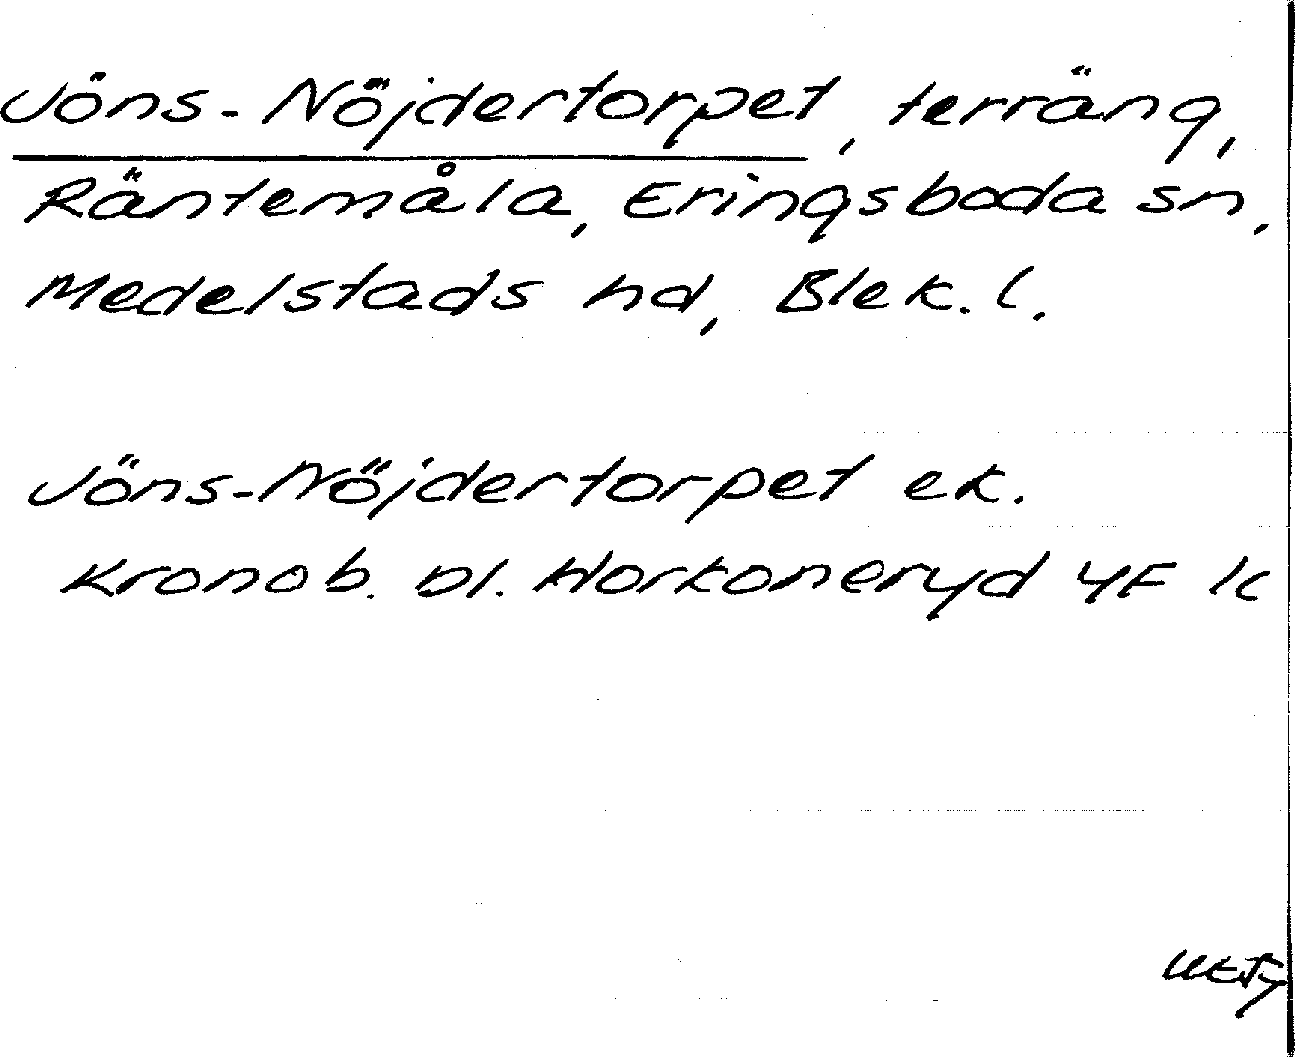 Jöns-Nöjdertorpet, terräng,
Räntemåla, Eringsboda sn,
Medelstads hd, Blek. l.
Jöns-Nöjdertorpet ek.
Kronob. bl. Korkoneryd 4F 1c